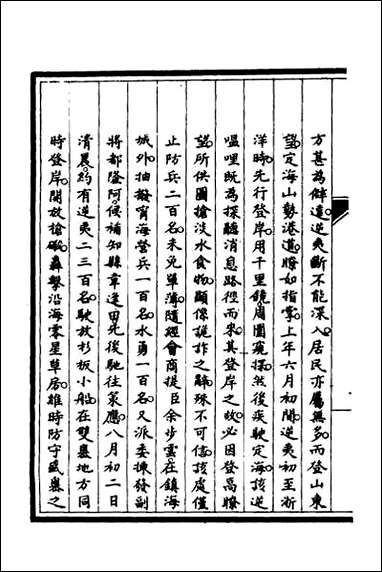 方甚為僻遠逆夷斷不能深入居民亦屬無多而登山東
望定海山勢港道瞭如指掌上年六月初間逆夷初至浙
洋時先行登岸用千里鏡周圍窺探然後疾駛定海該逆
嗢哩既為探聽消息路徑而來其登岸之故必因登高瞭
望所供圖搶淡水食物顯係詭詐之辭殊不可信該處僅
止防兵二百名未免單薄隨經會商提臣余步雲在鎮海
城外抽撥甯海營兵一百名水勇一百名又派委揀發副
將都隆阿候補知縣韋逢甲先後馳往策應八月初二日
清晨約有逆夷二三百名駛放杉板小船在雙嶴地方同
時登岸開放槍礮轟擊沿海零星草居維時防守盛嶴之